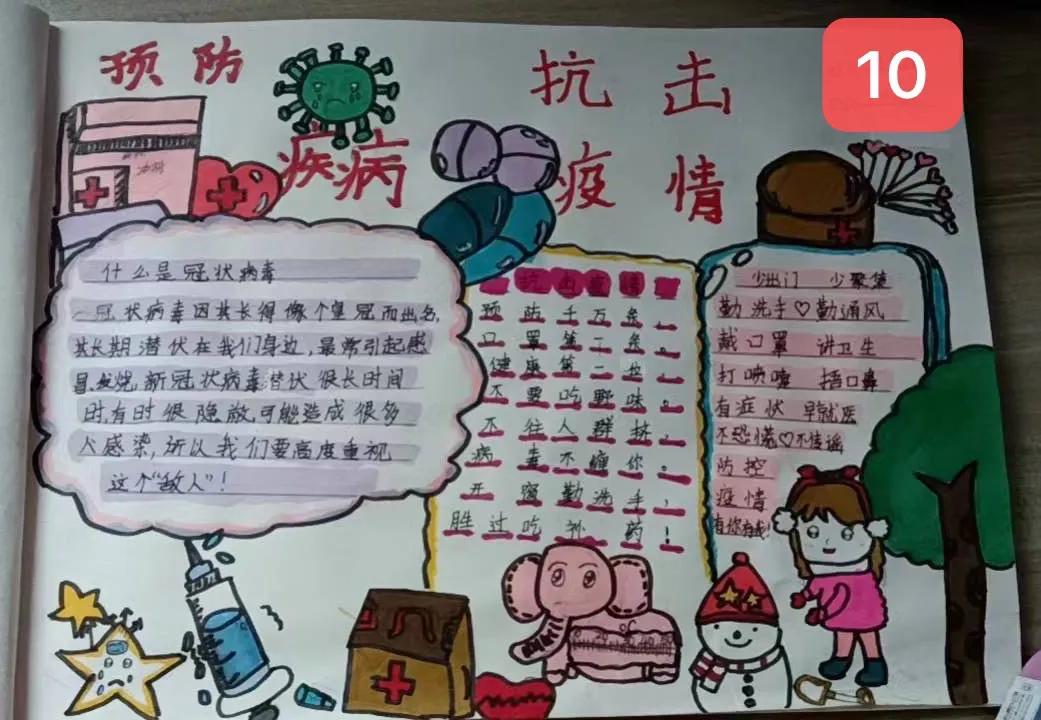 预防
疾病
抗击
疫情
10
什么是冠状病毒
冠状病毒因其长得像个皇冠而出名,
其长期潜伏在我们身边,最常引起感
冒.发烧新冠状病毒潜伏很长时间
时,有时很隐蔽,可能造成很多
人感染,所以我们要高度重视
这个“敌人”!
抗击疫情
预防千万条。
口罩第一条。
健康第一位。
不要吃野味。
不往人群挤,
病毒不缠你。
开窗勤洗手,
胜过吃补药!
少出门 少聚集
勤洗手♡勤通风
戴口罩 讲卫生
打喷嚏 捂口鼻
有症状 早就医
不恐慌♡不传谣
防控
疫情
有你有我!